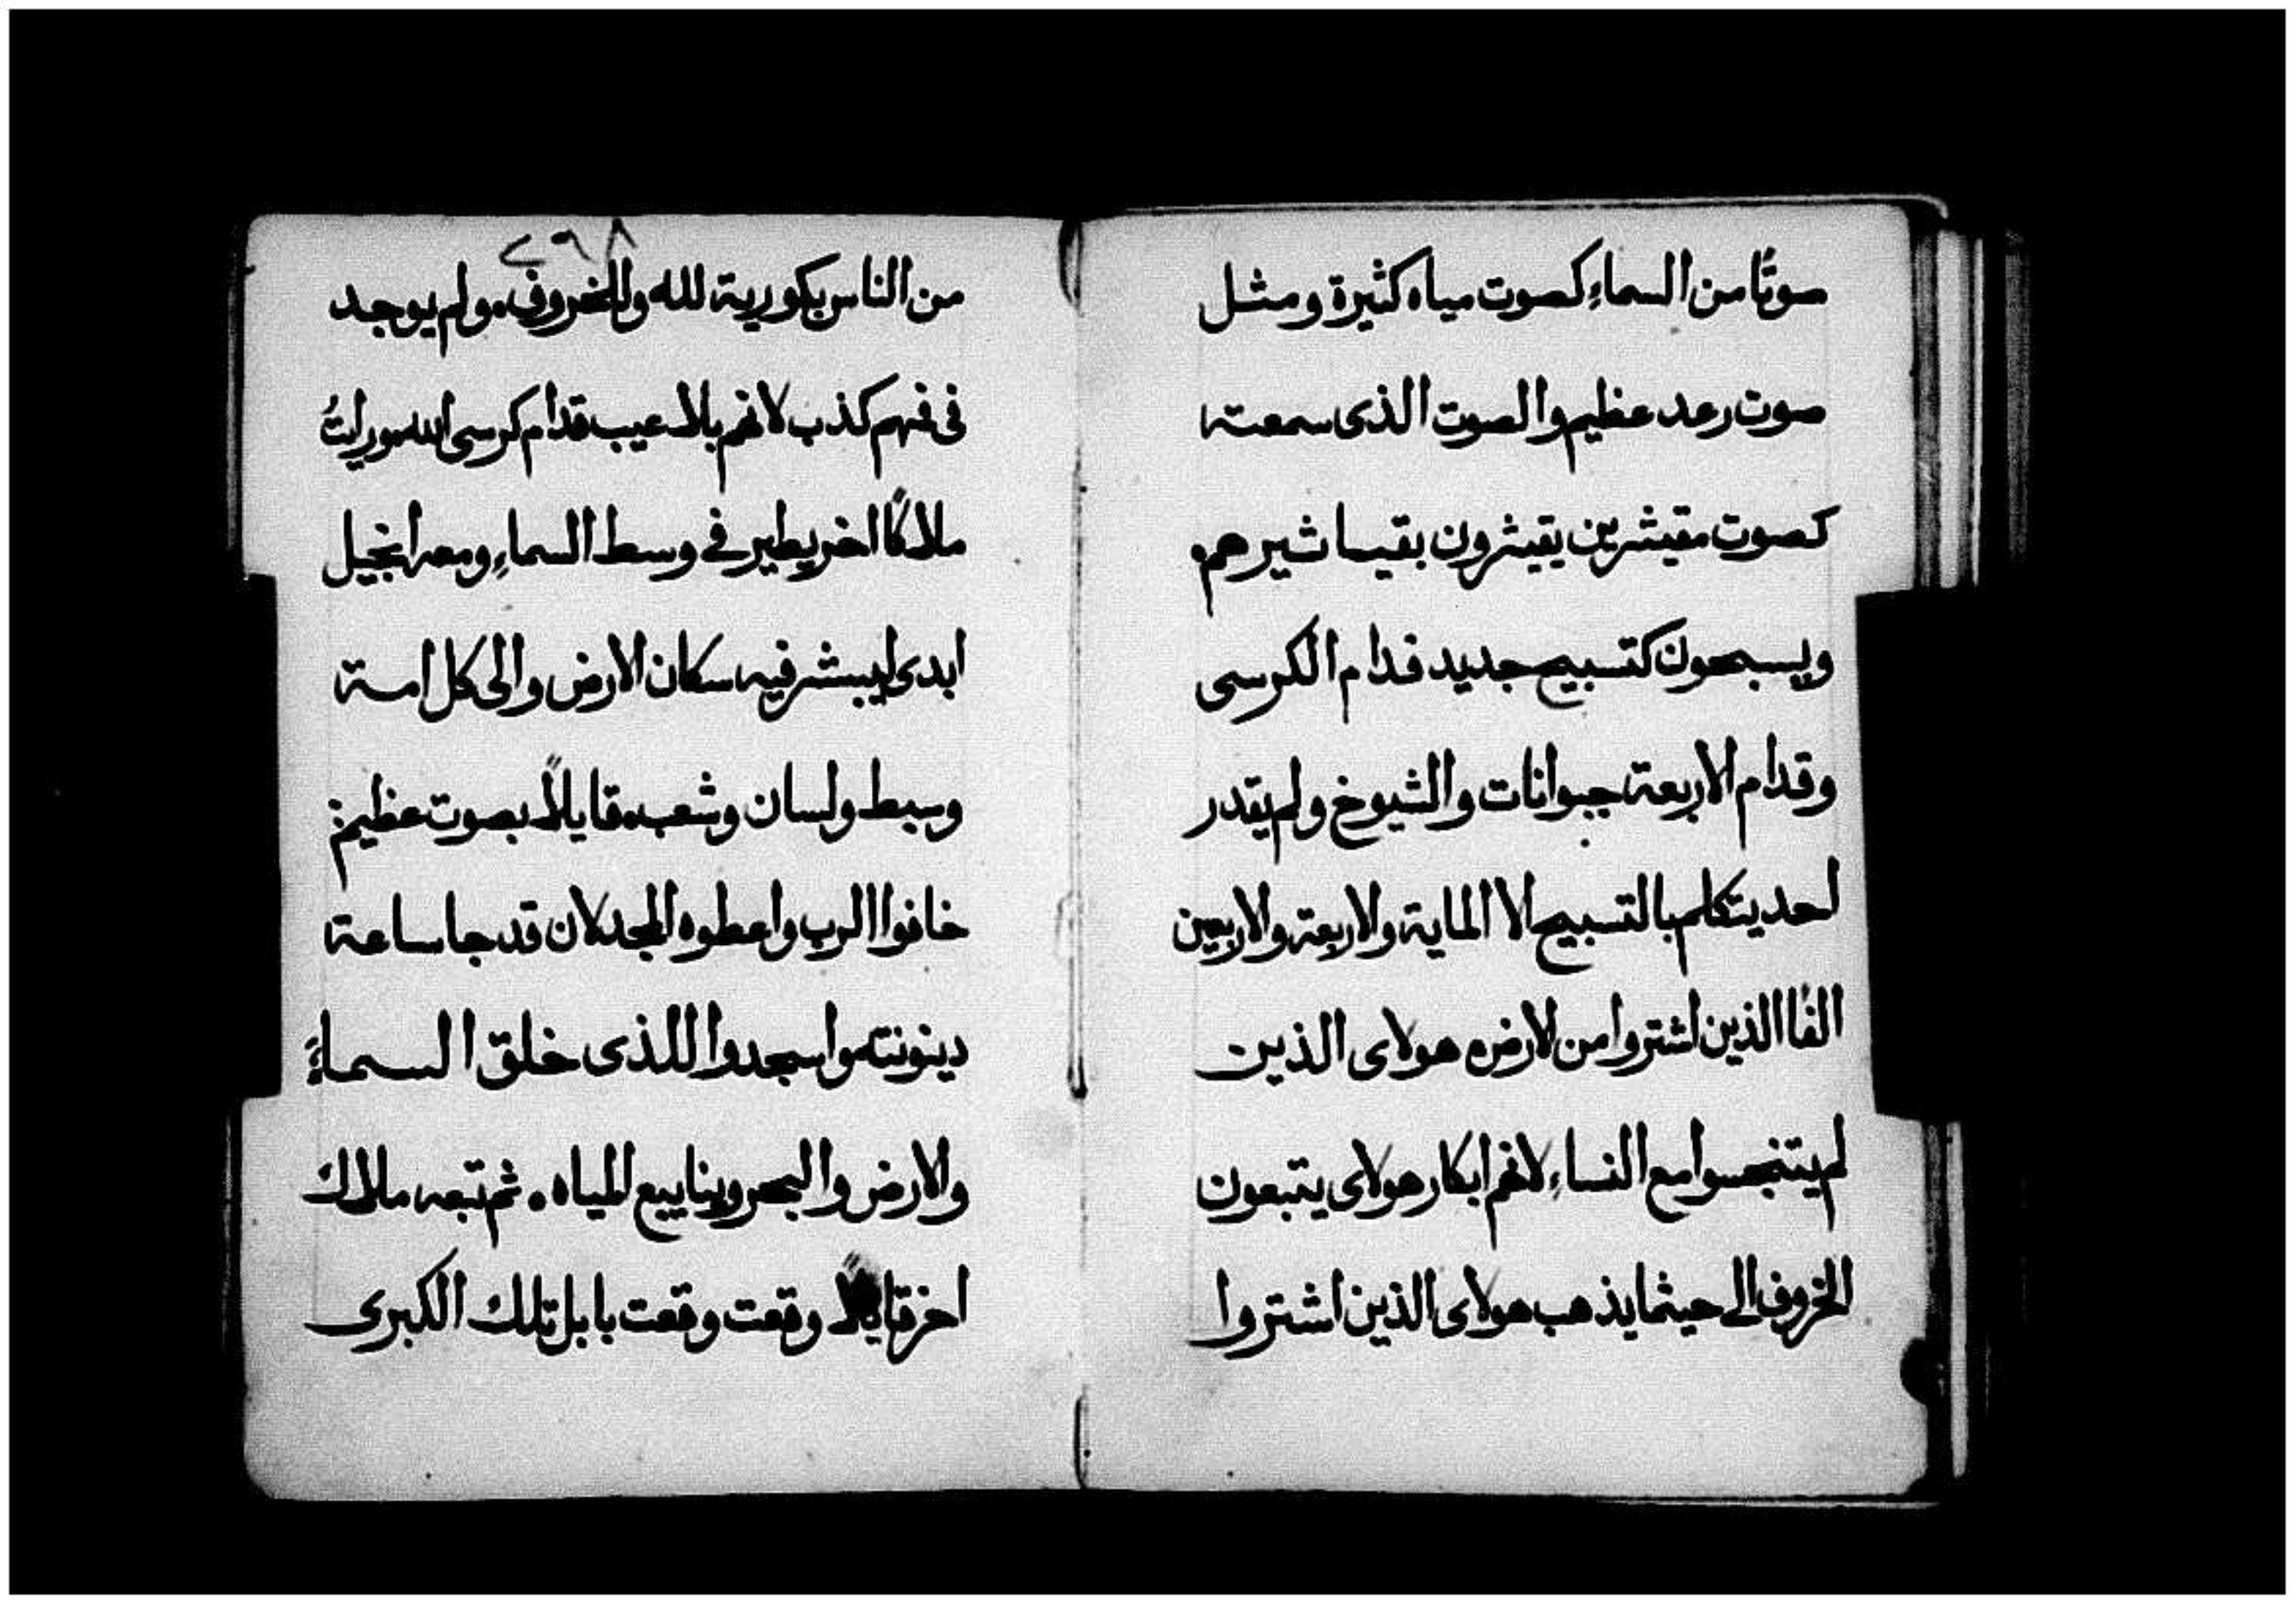 صوتًا من السماءِ كصوت مياه كثيرة ومثل
صوت رعد عظيم والصوت الذى سمعته
كصوت مقيثرين يقيثرون بقيساثيرهم
ويسبحون كتسبيح جديد قدام الكرسى
وقدام الاربعة حيوانات والشيوخ ولم يقدر
احد يتكلم بالتسبيح الا الماية والاربعة والاربعين
الفًا الذين اشتروا من الارض هولاى الذين
لم يتنجسوا مع النساءِ لانهم ابكار هولاى يتبعون
الخروف الى حيثما يذهب هولاى الذين اشتروا
٢٩٨
من الناس بكورية لله وللخروف ولم يوجد
فى فهم كذب لانهم بلا عيب قدام كرسى الله ورايتُ
ملاكًا اخر يطير فى وسط السماءِ ومعه انجيل
ابدى ليبشر فيه سكان الارض والى كل امة
وسبط ولسان وشعب قايلاً بصوت عظيم
خافوا الرب واعطوه المجد لان قد جا ساعة
دينونته واسجدوا للذى خلق السماءَ
والارض والبحر وينابيع المياه ثم تبعه ملاك
اخر قايلاً وقعت وقعت بابل تلك الكبرى